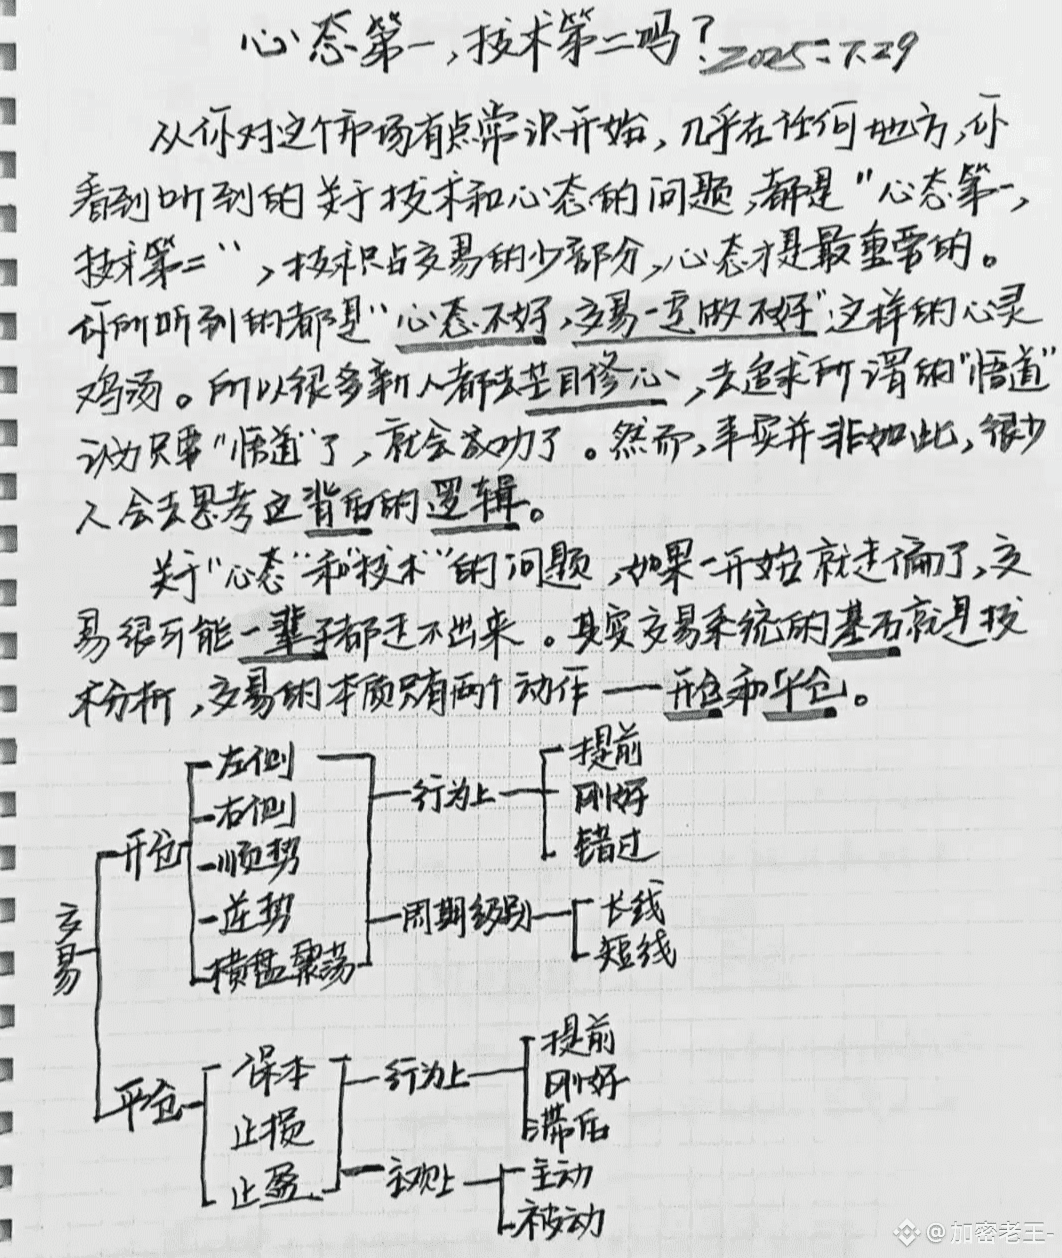 心态第一,技术第二吗? 2025.7.29
从你对这个市场有点常识开始,几乎在任何地方,你
看到听到的关于技术和心态的问题,都是"心态第一,
技术第二",技术只占交易的少部分,心态才是最重要的。
你所听到的都是"心态不好,交易一定做不好"这样的心灵
鸡汤。所以很多新人都去盲目修心,去追求所谓的"悟道"
认为只要"悟道"了,就会成功了。然而,事实并非如此,很少
人会去思考这背后的逻辑。
关于"心态"和"技术"的问题,如果一开始就走偏了,交
易很可能一辈子都走不出来。其实交易系统的基石就是技
术分析,交易的本质只有两个动作——开仓和平仓。
交易
开仓
左侧
右侧
顺势
逆势
横盘震荡
行为上
提前
刚好
错过
周期级别
长线
短线
平仓
保本
止损
止盈
行为上
提前
刚好
滞后
主观上
主动
被动
@加密老王-